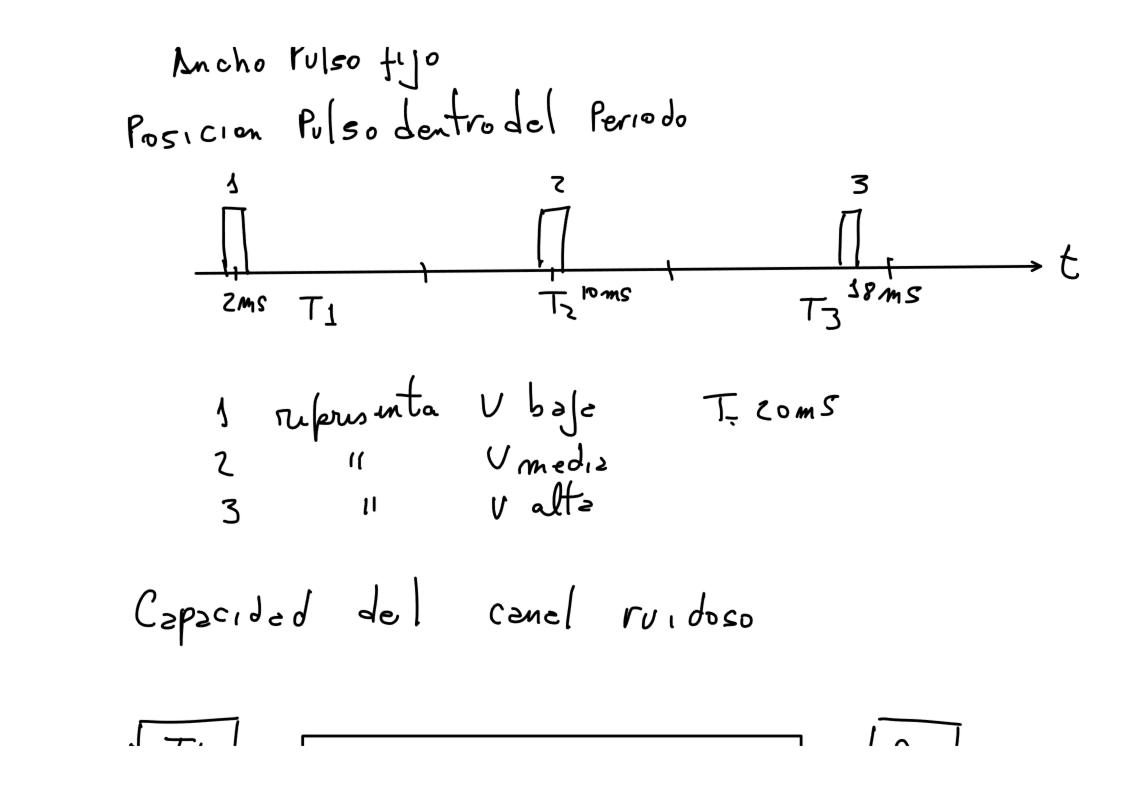 Ancho Pulso fijo
Posicion Pulso dentro del Periodo
1 2 3
t
2ms T1 T2 10ms T3 18ms
1 representa V baja T = 20ms
2 " V media
3 " V alta
Capacidad del canal ruidoso